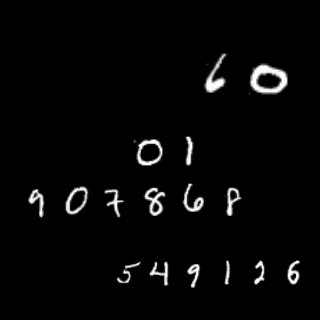 60
01
907868
549126